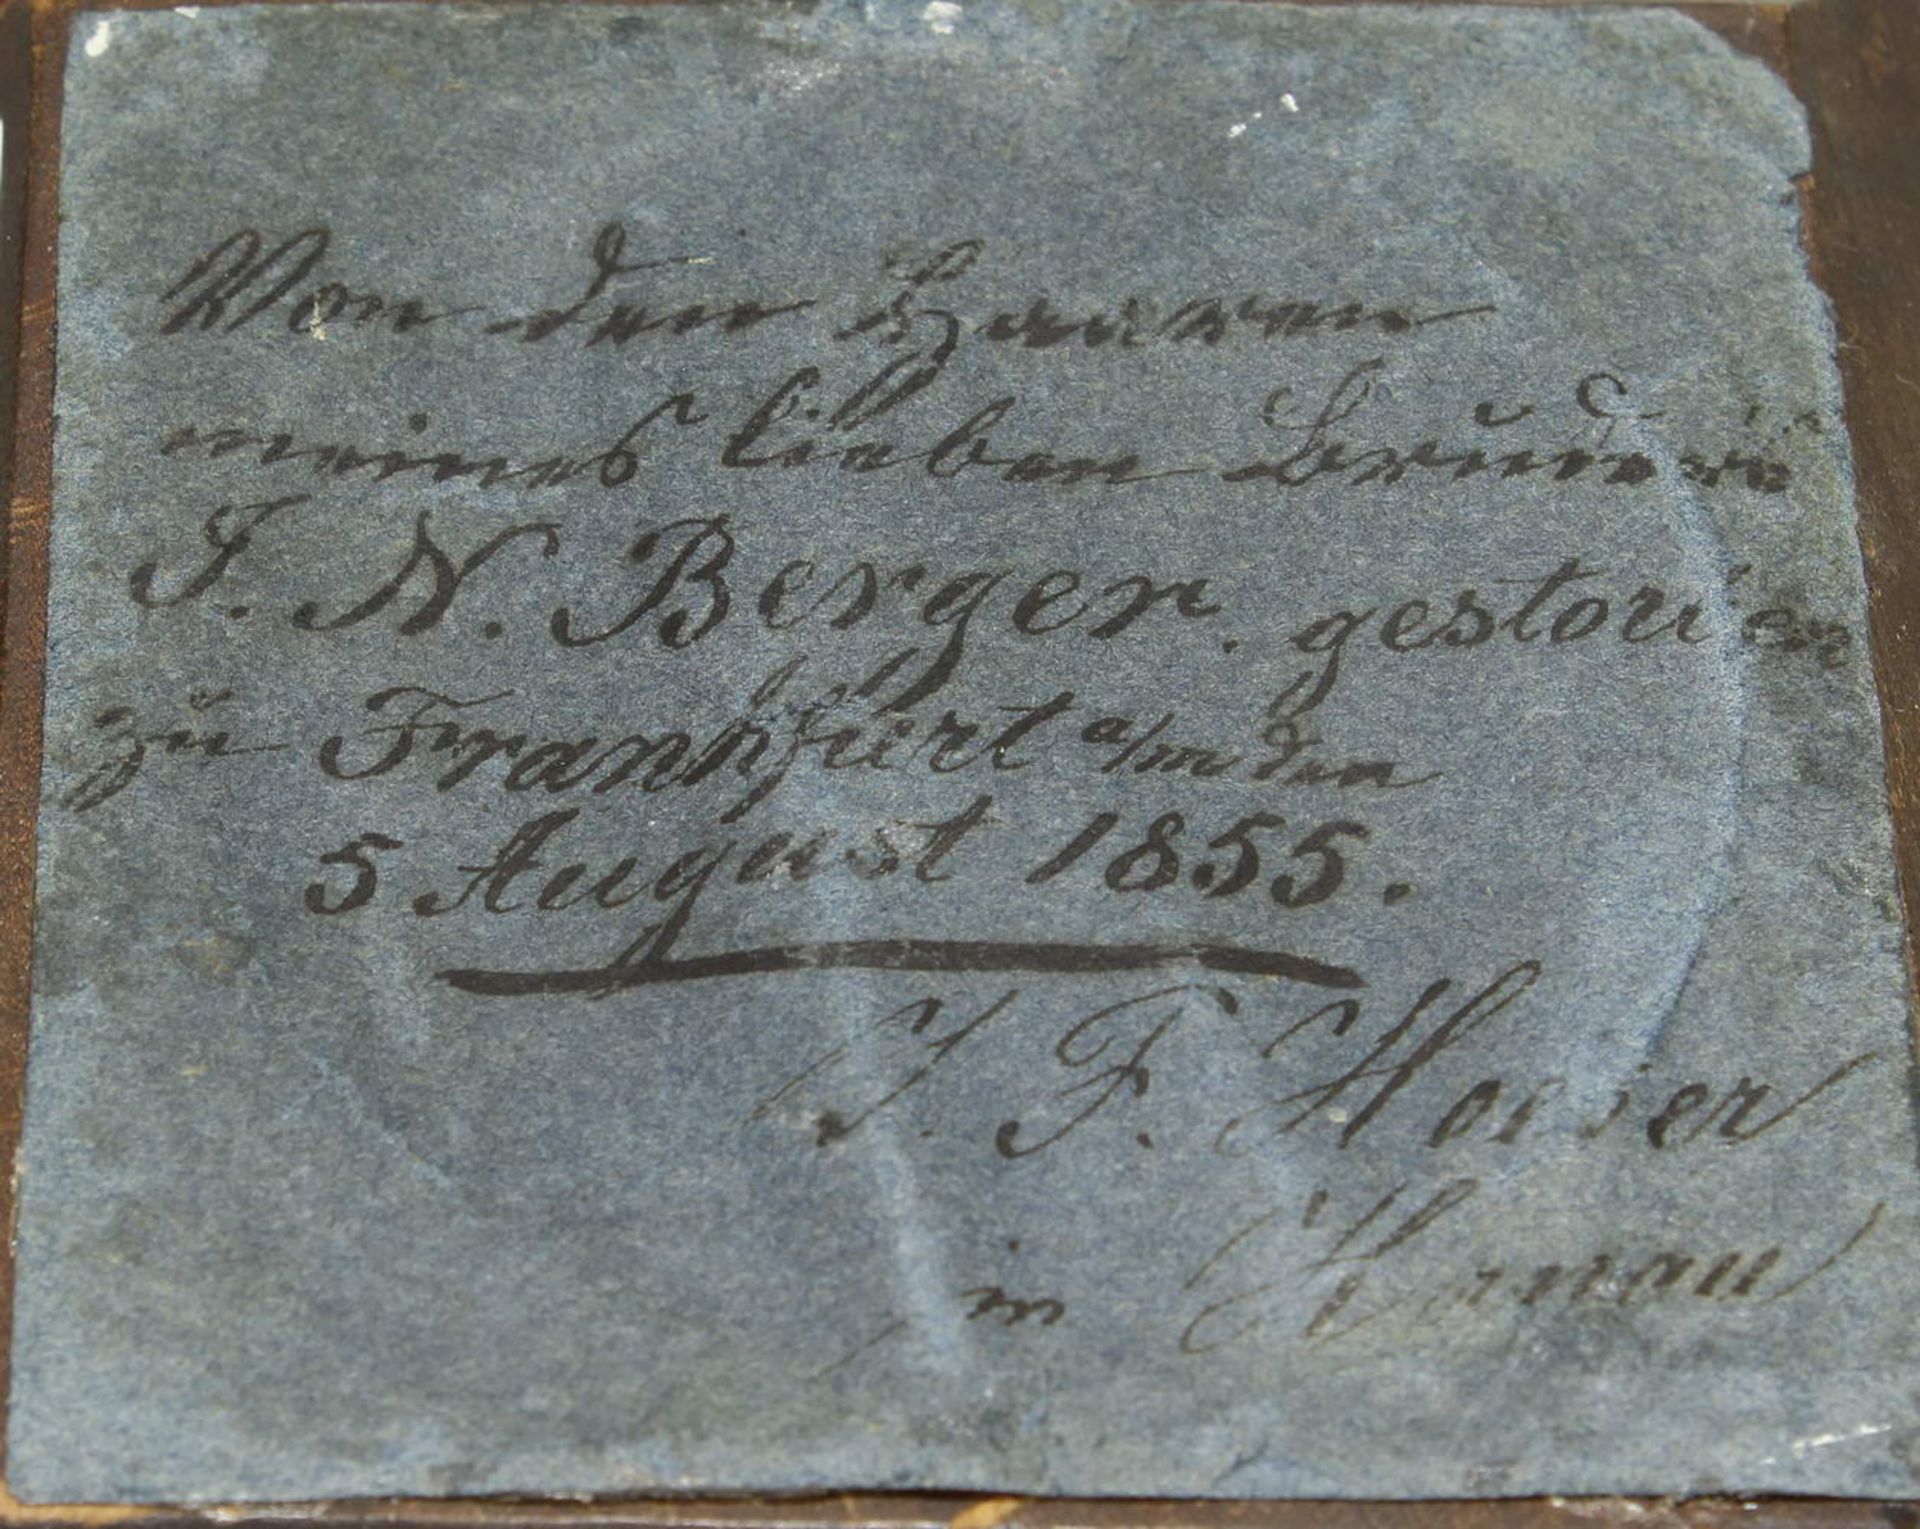 Von den Haaren
meines lieben Bruders
J. N. Berger. gestorben
zu Frankfurt a/m den
5 August 1855.
J. F. Moeser
in Hanau